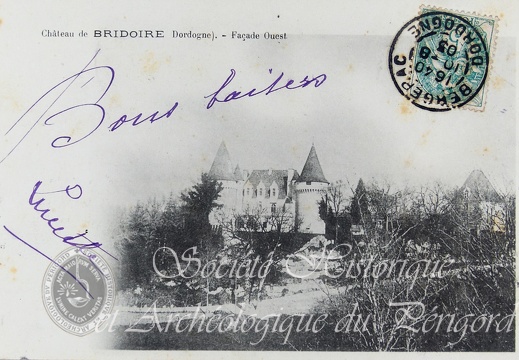 Château de BRIDOIRE Dordogne). - Façade Ouest
BERGERAC
DORDOGNE
Bons baisers
Société Historique
et Archéologique du Périgord